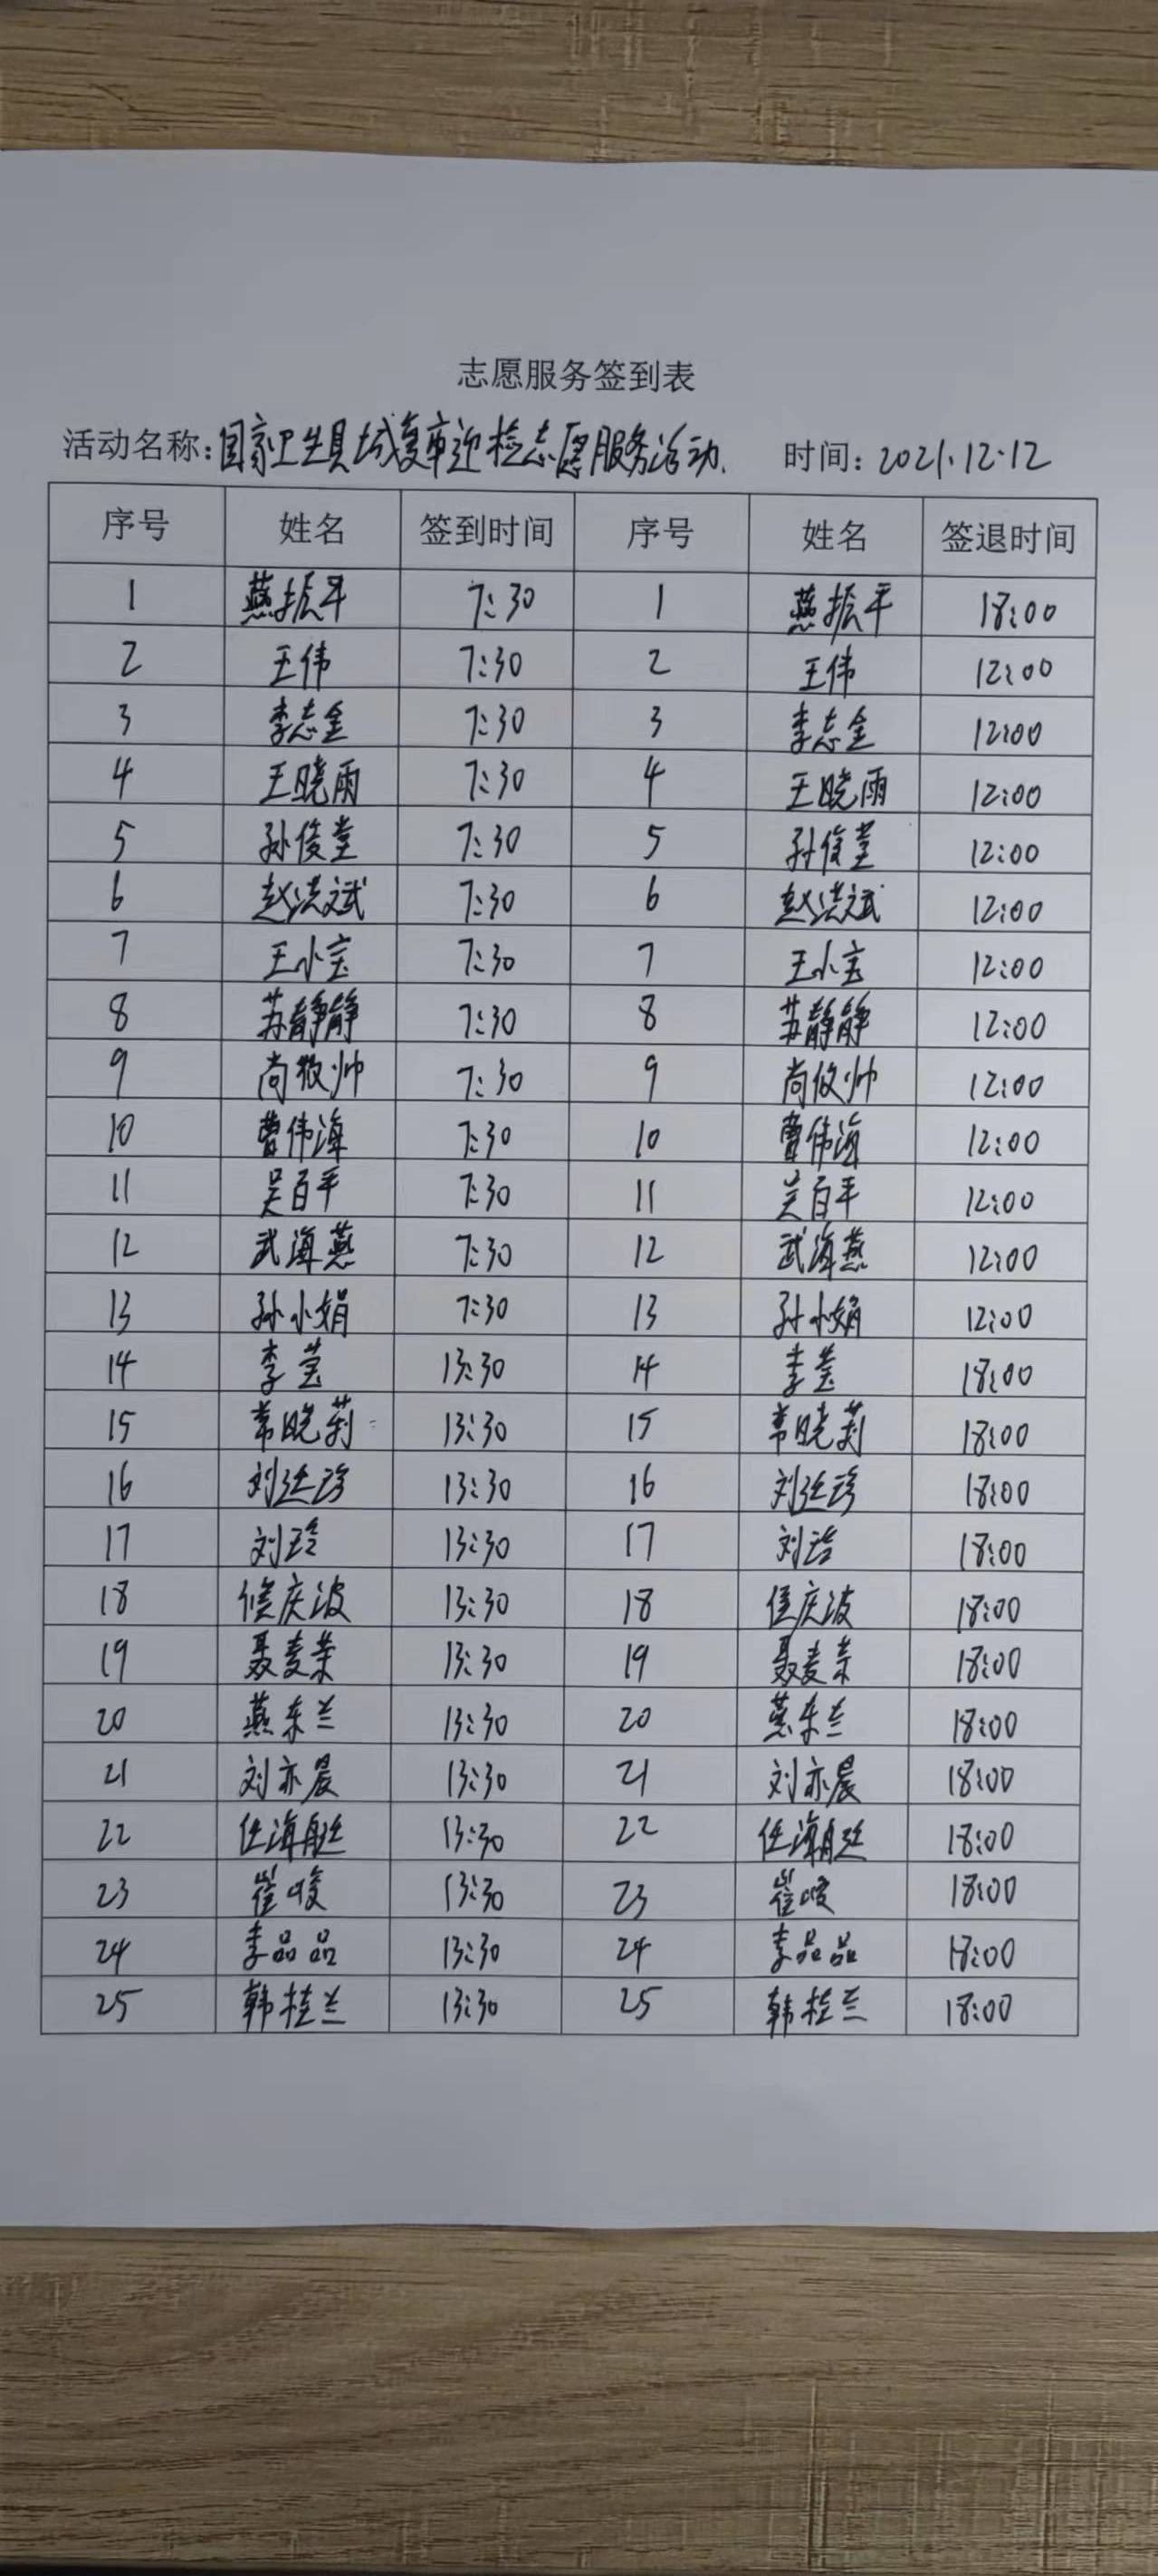 志愿服务签到表
活动名称:国家卫生县城复审迎检志愿服务活动. 时间:2021.12.12
序号 姓名 签到时间 序号 姓名 签退时间
1 燕振平 7:30 1 燕振平 18:00
2 王伟 7:30 2 王伟 12:00
3 李志金 7:30 3 李志金 12:00
4 王晓雨 7:30 4 王晓雨 12:00
5 孙俊堂 7:30 5 孙俊堂 12:00
6 赵洪斌 7:30 6 赵洪斌 12:00
7 王小宝 7:30 7 王小宝 12:00
8 苏静静 7:30 8 苏静静 12:00
9 尚 帅 7:30 9 尚 帅 12:00
10 曹伟海 7:30 10 曹伟海 12:00
11 吴百平 7:30 11 吴百平 12:00
12 武海燕 7:30 12 武海燕 12:00
13 孙小娟 7:30 13 孙小娟 12:00
14 李莹 13:30 14 李莹 18:00
15 常晓莉 13:30 15 常晓莉 18:00
16 刘 珍 13:30 16 刘 珍 18:00
17 刘玲 13:30 17 刘 18:00
18 候庆波 13:30 18 侯庆波 18:00
19 聂麦荣 13:30 19 聂麦荣 18:00
20 燕东兰 13:30 20 燕东兰 18:00
21 刘亦晨 13:30 21 刘亦晨 18:00
22 任海艇 13:30 22 任海艇 18:00
23 崔峻 13:30 23 崔峻 18:00
24 李品品 13:30 24 李品品 18:00
25 韩桂兰 13:30 25 韩桂兰 18:00